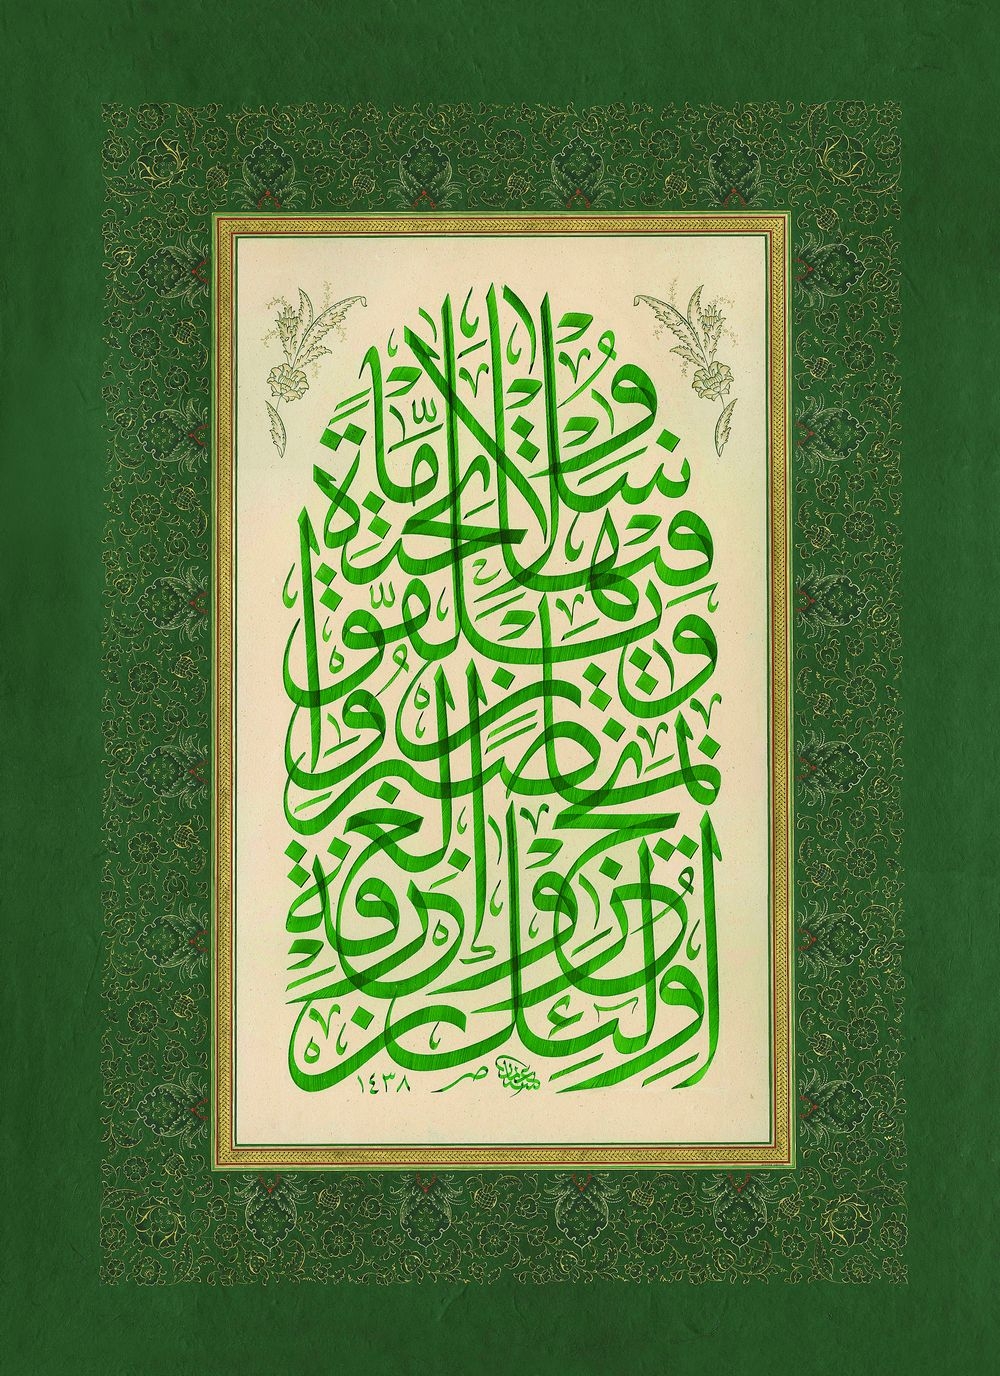 أُولَئِكَ يُجْزَوْنَ الْغُرْفَةَ
بِمَا صَبَرُوا
وَيُلَقَّوْنَ
فِيهَا تَحِيَّةً
وَسَلَامًا
١٤٣٨